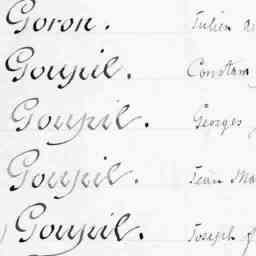 Goron. Julien
Goupil. Constant
Goupil. Georges
Goupil. Jean Ma
Goupil. Joseph